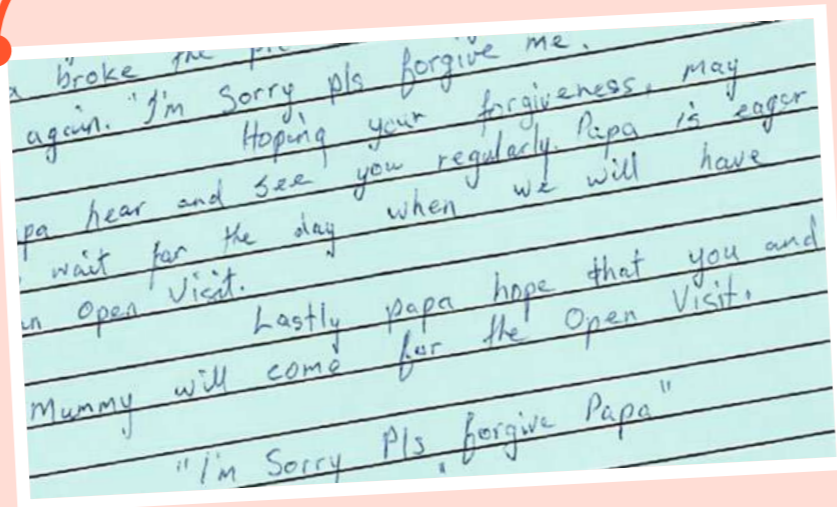 broke the
again. "I'm Sorry pls forgive me.
Hoping your forgiveness, may
pa hear and see you regularly. Papa is eager
wait for the day when we will have
n Open Visit.
Lastly papa hope that you and
Mummy will come for the Open Visit.
"I'm Sorry Pls forgive Papa"